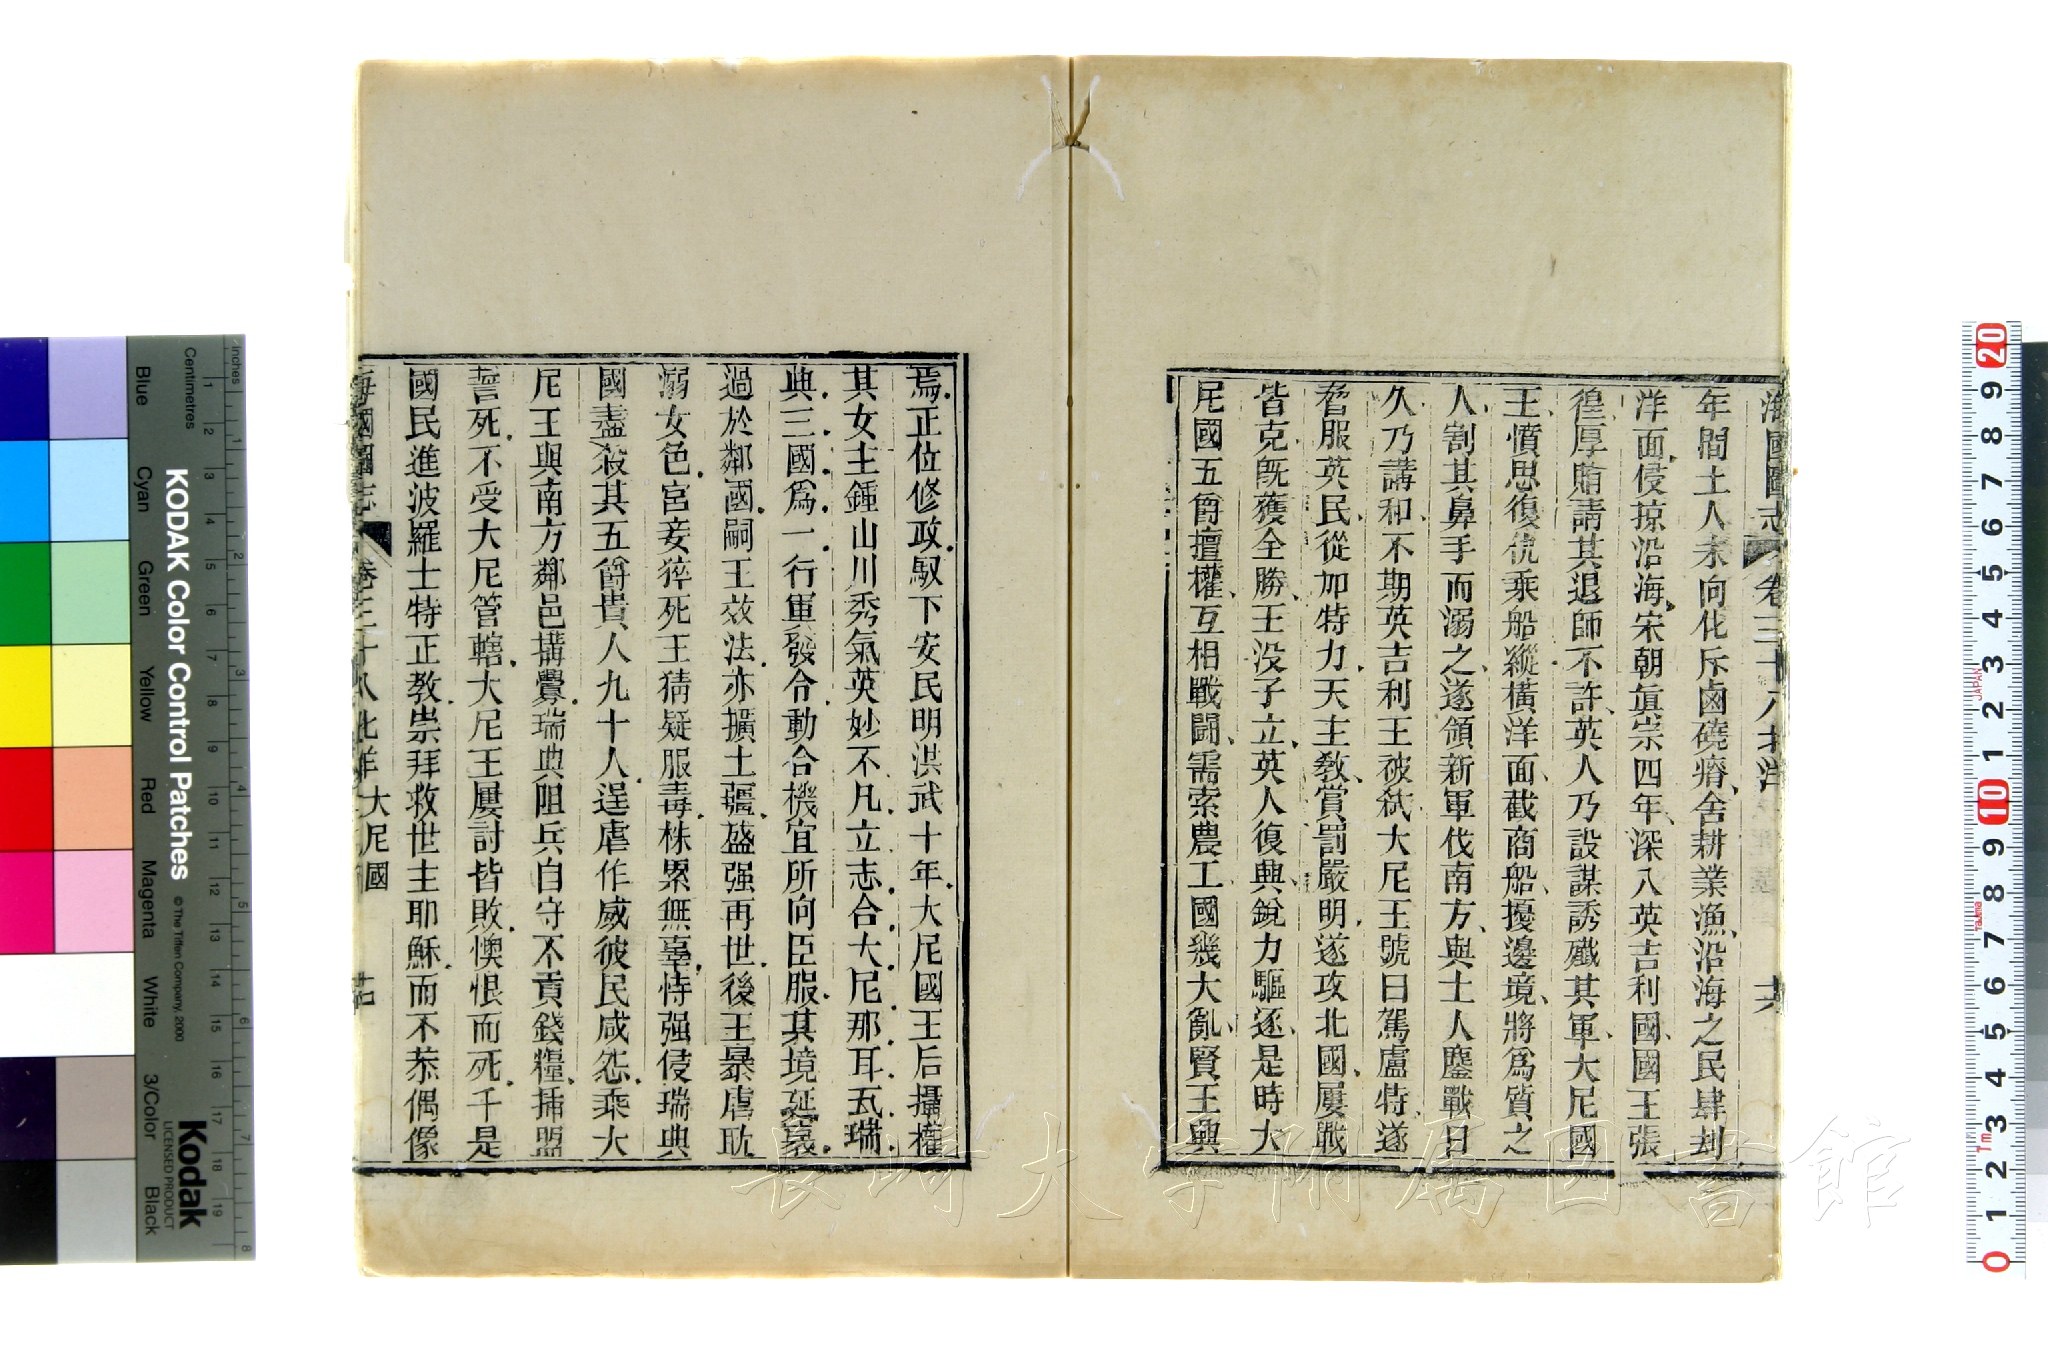 海國圖志 卷三十八 北洋 十六
年間土人未向化斥鹵磽瘠舍耕業漁沿海之民肆刦
洋面侵掠沿海宋朝眞宗四年深入英吉利國國王張
徨厚賄請其退師不許英人乃設謀誘殲其軍大尼國
王憤思復仇乘船縱橫洋面截商船擾邊境將爲質之
人割其鼻手而溺之遂領新軍伐南方與士人鏖戰日
久乃講和不期英吉利王被弒大尼王號曰駕盧特遂
耆服英民從加特力天主教賞罰嚴明遂攻北國屢戰
皆克旣獲全勝王没子立英人復興銳力驅逐是時大
尼國五爵擅權互相戰鬬需索農工國幾大亂賢王興
焉正位修政馭下安民明洪武十年大尼國王后攝權
其女主鍾山川秀氣英妙不凡立志合大尼那耳瓦瑞
典三國爲一行軍發合動合機宜所向臣服其境延袤
過於鄰國嗣王效法亦擴土疆盛强再世後王暴虐耽
溺女色宮妾猝死王猜疑服毒株累無辜恃强侵瑞典
國盡殺其五爵貴人九十人逞虐作威彼民咸怨乘大
尼王與南方鄰邑搆釁瑞典阻兵自守不貢錢糧揷盟
誓死不受大尼管轄大尼王屢討皆敗懊恨而死于是
國民進波羅士特正教崇拜救世主耶穌而不恭偶像
海國圖志 卷三十八 北洋 大尼國 十七